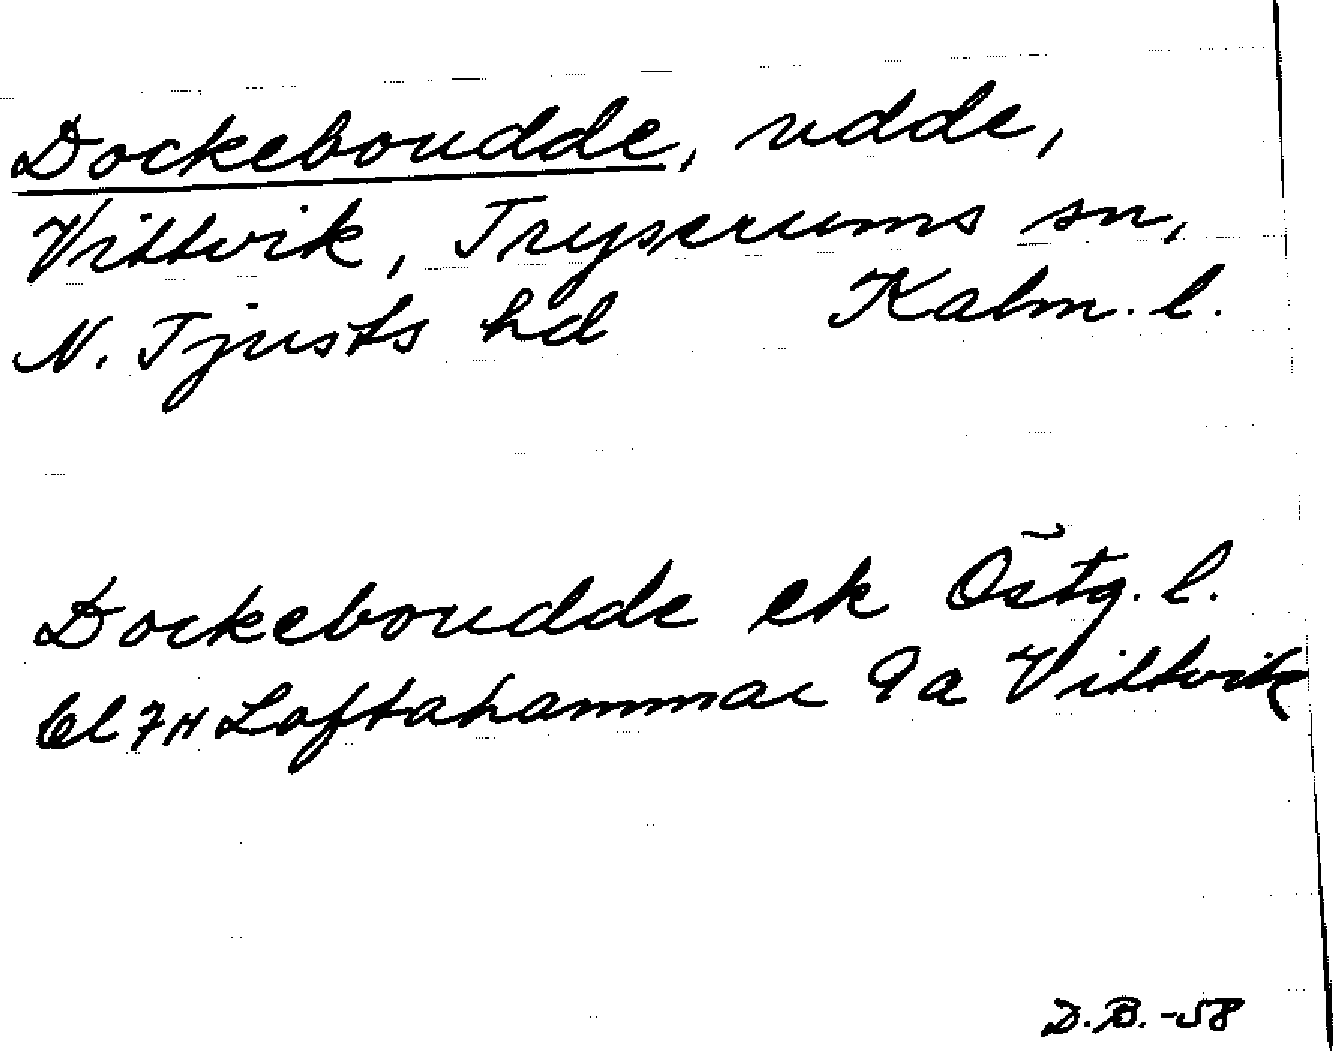 Dockeboudde, udde,
Vittvik, Tryserums sn,
N. Tjusts hd Kalm. l.
Dockeboudde ek Östg. l.
bl 7H Loftahammar 9a Vittvik
D.B.-58